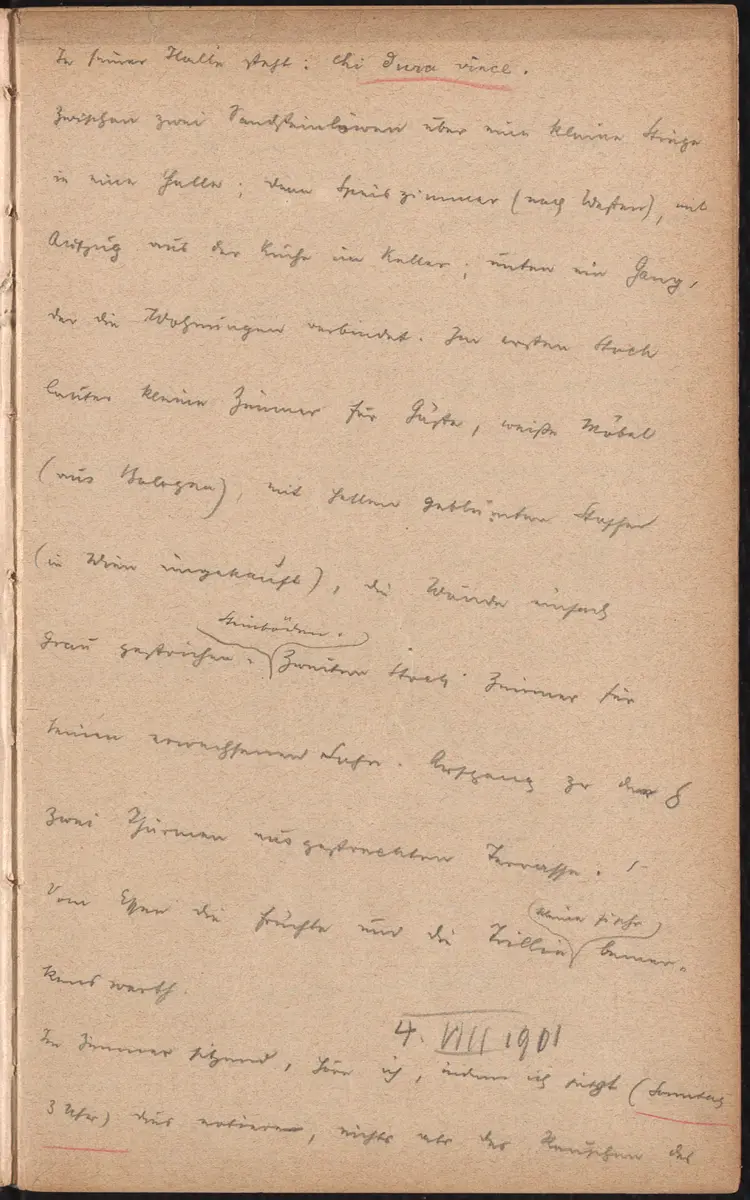 In seiner Halle steht: chi dura vince.
Zwischen zwei Sandsteinlöwen über eine kleine Stiege
in eine Halle; dann Speiszimmer (nach Westen), mit
Aufzug aus der Küche im Keller; unten ein Gang,
der die Wohnungen verbindet. Im ersten Stock
lauter kleine Zimmer für Gäste, weiße Möbel
(aus Bologna), mit hellen geblümten Stoffen
(in Wien eingekauft), die Wände einfach
Steinböden.
grau gestrichen. Zweiten Stock Zimmer für
seinen erwachsenen Sohn. Aufgang zu der
zwei Thürmen ausgestreckten Terrasse.
Vom Essen die Früchte und die Trillie bemer-
kleine Fische
kenswerth.
4. VIII 1901
Im Zimmer sitzend, höre ich, indem ich jetzt (Sonntag
3 Uhr) dies notiere, nichts als das Rauschen des